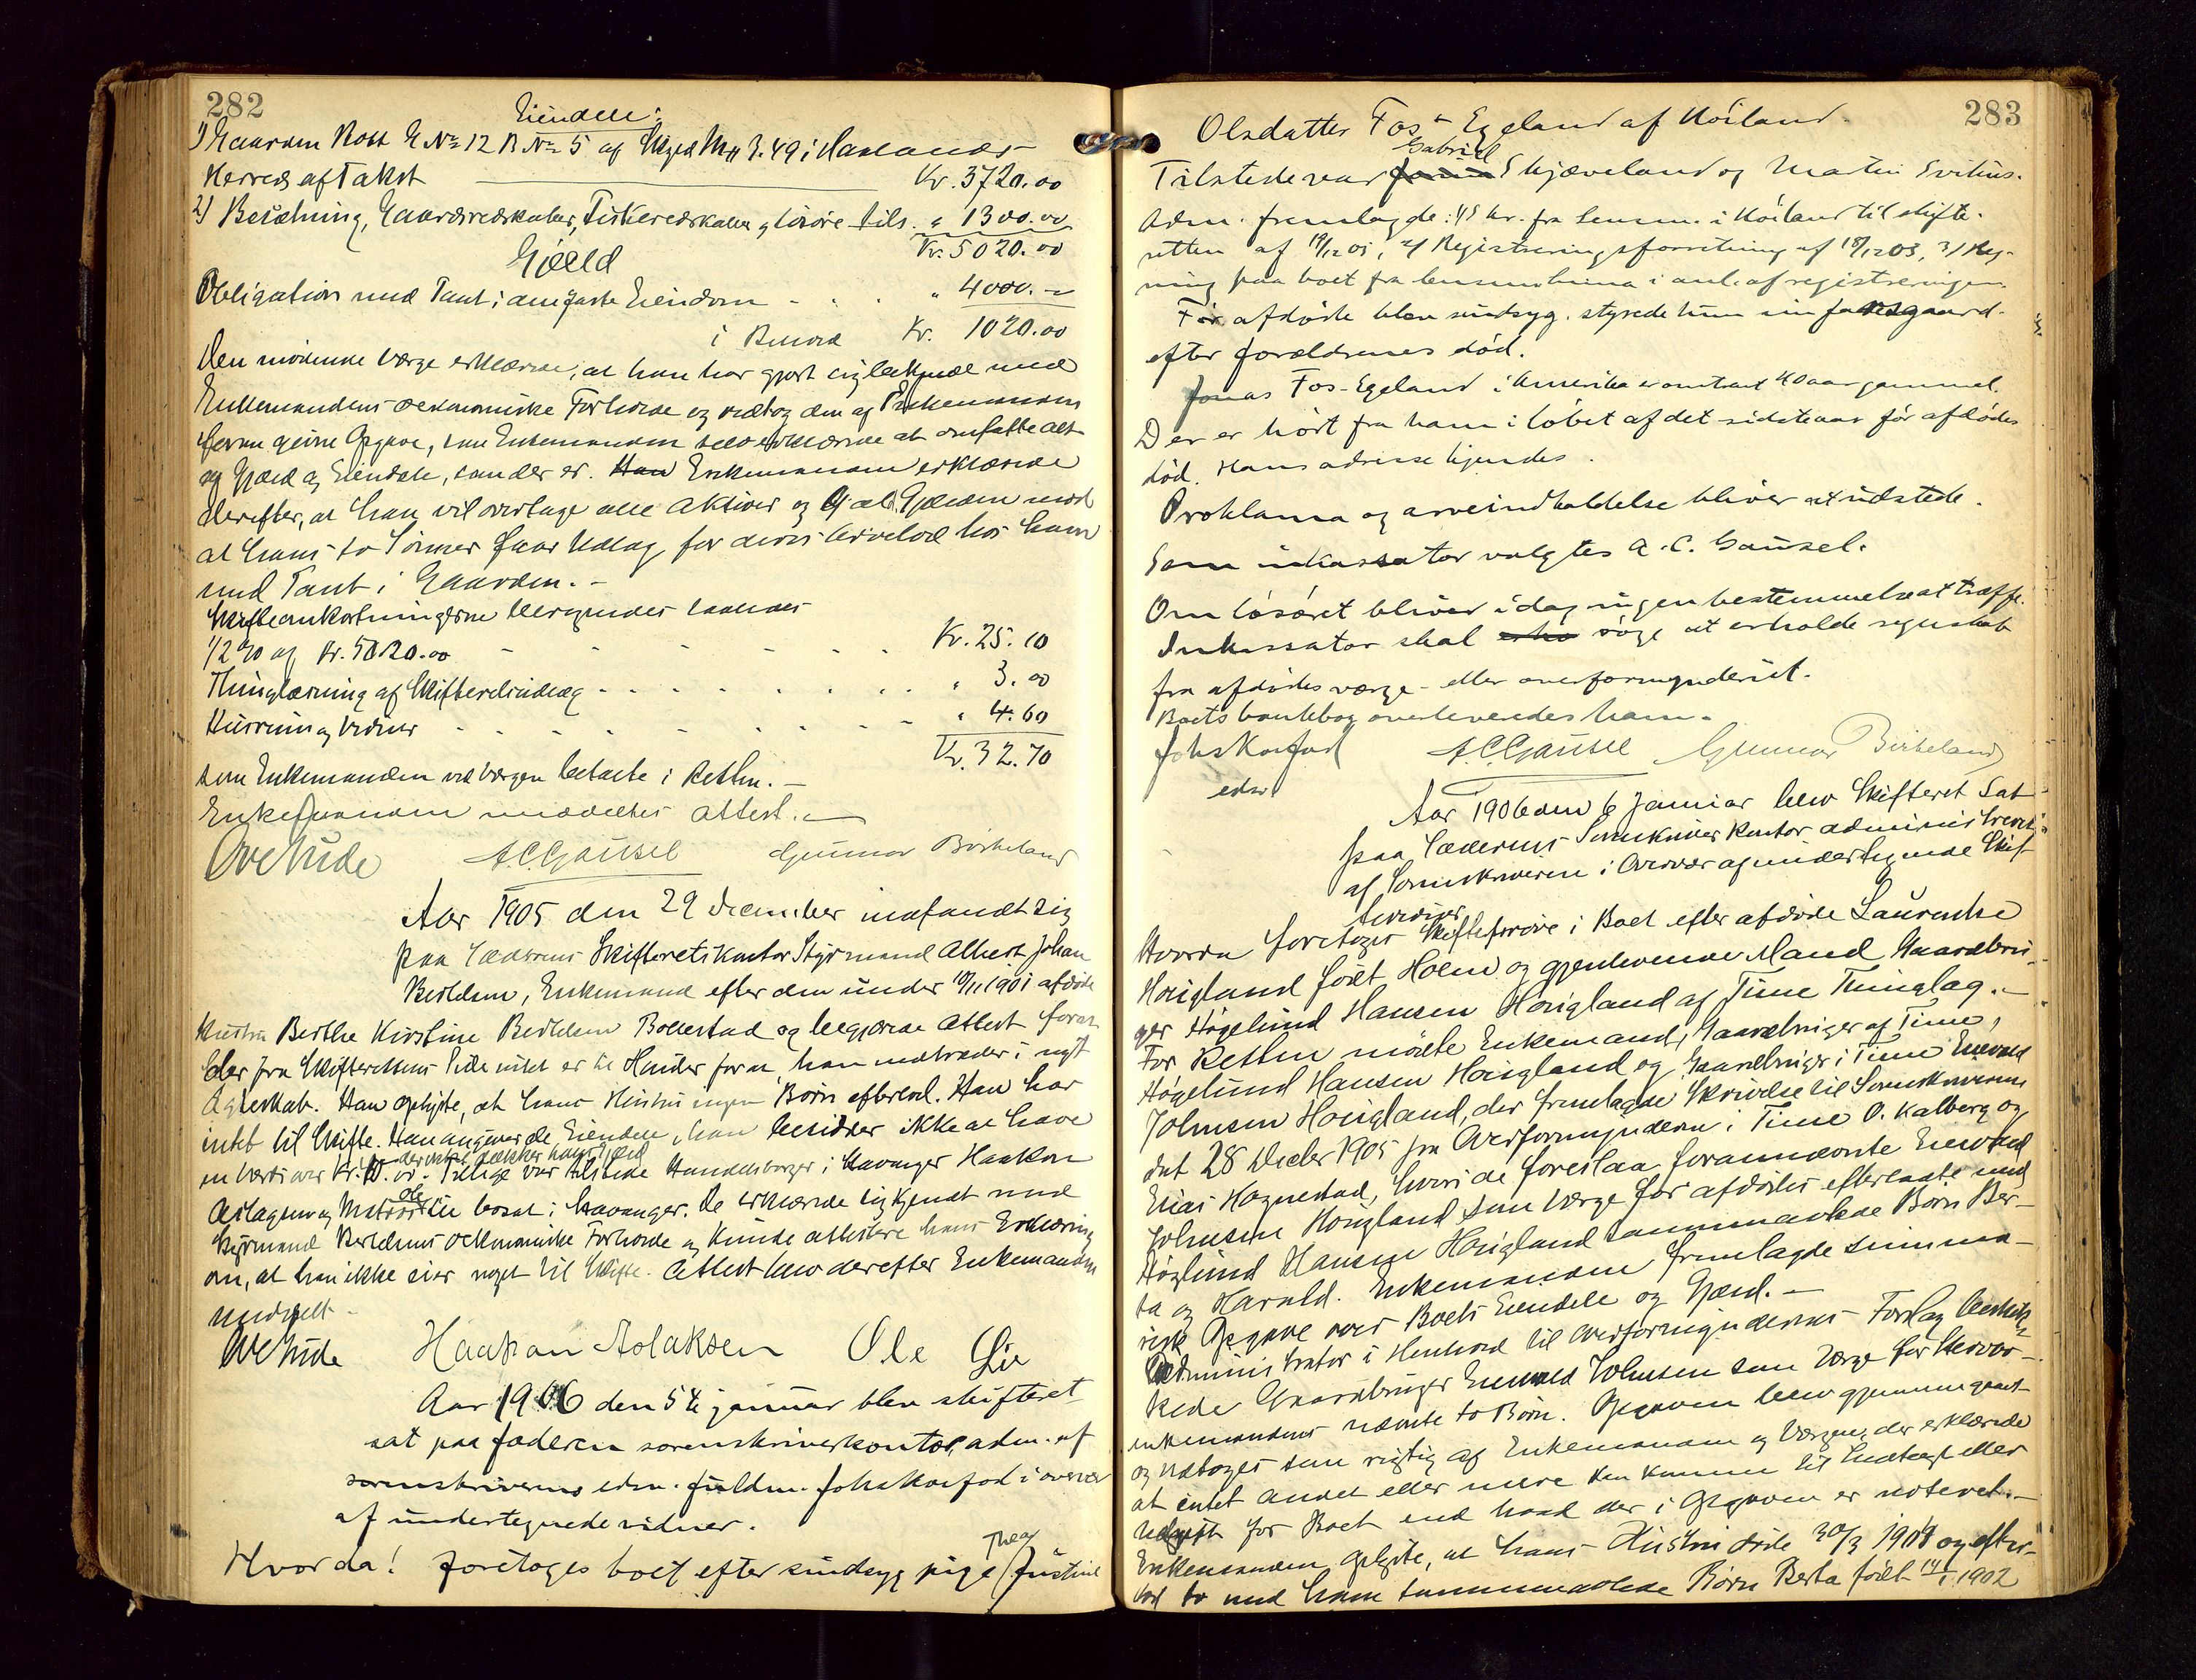 282
Eiendele:
1) Gaarden Rott G No 12 B No 5 af Skyld Mk 3.49 i Haalands
Herred af Takst Kr. 3720.00
2) Besætning, Gaardsredskaber, Fiskeredskaber og løsøre tils. " 1300.00
Kr. 5020.00
Gjæld
Obligation med Pant i anførte Eiendom - - - " 4000.-
i Behold Kr. 1020.00
Den mødende Værge erklærede, at han har gjort sig bekjendt med
Enkemandens oekonomiske Forholde og vedtog den af Enkemanden
herom givne Opgave, som Enkemanden selv erklærede at omfatte alt
og Gjæld og Eiendele, som der er. Enkemanden erklærede
derefter, at han vil overtage alle Aktiver og al Gjælden mod
at hans to Sønner faar Udlæg for deres Arvelod hos ham
med Pant i Gaarden.-
Skifteomkostningerne beregnedes saaledes
1/2 % af Kr. 5020.00 - - - - - - Kr. 25.10
Thinglæsning af Skifteudlæg - - - - - - " 3.00
Husrum og Vidner - - - - - - " 4.60
Kr. 32.70
som Enkemanden ved Værgen betalte i Retten.-
Enkemanden meddeltes Attest.-
Ove Hude A. C. Gausel Gunnar Birkeland
Aar 1905 den 29 December indfandt sig
paa Jæderens Skifteretskontor Styrmand Albert Johan
Bertelsen, Enkemand efter den under 10/11 1901 afdøde
Hustru Berthe Kirstine Bertelsen Bollestad og begjærede Attest for at
der fra Skifterettens Side intet er til Hinder for at han indtræder i nyt
Ægteskab. Han oplyste, at hans Hustru ingen Børn efterlod. Han har
intet til Skifte. Han angiver de Eiendele, han besidder ikke at have
der ikke dækker hans Gjæld
en Værdi over Kr. . Tillige var tilstede Handelsborger i Stavanger Haakon
Ole
Aslaksen og Matros Lie bosat i Stavanger. De erklærede sig kjendt med
Styrmand Bertelsens oekonomiske Forholde og kunde attestere hans Erklæring
om, at han ikke eier noget til Skifte. Attest blev derefter Enkemanden
meddelt.-
Ove Hude Haakon Aslaksen Ole Lie
Aar 1906 den 5te januar blev skifteret
sat paa jæderen sorenskriverkontor, adm. af
sorenskriverens edsv. fuldm. Johs Korfod i overvær
af undertegnede vidner.
Thea
Hvorda! foretoges boet efter sindsyg pige Justine
283
Olsdatter Fos-Egeland af Høiland.
Gabriel
Tilstede var Skjæveland og Martin Svihus.
Adm. fremlagde: 1/ Skr. fra Lensm. i Høiland til skifte-
retten af 19/12 05, 2/ Registreringsforretning af 18/12 05, 3/ Reg-
ning paa boet fra lensmanden i anl. af registreringen.
Før afdøde blev sindsyg, styrede hun sin farsgaard
efter forældrenes død.
Jonas Fos-Egeland i Amerika er omtrent 40 aar gammel.
Der er hørt fra ham i løbet af det sidste aar før afdødes
død. Hans adresse kjendes.
Proklama og arveindkaldelse bliver at udstede.
Som inkassator valgtes A. C. Gausel.
Om løsøret bliver idag ingen bestemmelse at træffe.
Inkassator skal søge at erholde regnskab
fra afdødes værge - eller overformynderiet.
Boets bankbog overleveredes ham.
Johs Korfod A. C. Gausel Gunnar Birkeland
edsv
Aar 1906 den 6 Januar blev Skifteret sat
paa Jæderens Sorenskriver Kontor administreret
af Sorenskriveren i Overvær af undertegnede Skif-
tevidner
Hvorda foretoges Skifteprøve i Boet efter afdøde Laurentse
Høigland født Holen og gjenlevende Mand Gaardbru-
ger Høgelund Hansen Høigland af Time Thinglag.-
For Retten mødte Enkemand, Gaardbruger af Time,
Høgelund Hansen Høigland og Gaardbruger i Time Enevald
Johnsen Høigland, der fremlagde Skrivelse til Sorenskriveren
dat 28 Decbr 1905 fra Overformynderne i Time O. Kalberg og
Elias Hognestad, hvori de foreslaa forannævnte Enevald
Johnsen Høigland som Værge for afdødes efterladte med
Høglund Hansen Høigland sammenavlede Børn Ber-
ta og Harald. Enkemanden fremlagde summa-
risk Opgave over Boets Eiendele og Gjæld.-
Administrator i Henhold til Overformyndernes Forslag beskik-
kede Gaardbruger Enevald Johnsen som Værge for Stervbo-
enkemandens nævnte to Børn. Opgaven blev gjennemgaaet
og vedtoges som rigtig af Enkemanden og Værgen, der erklærede
at intet andet eller mere kan komme til Indtægt eller
Udgift for Boet end hvad der i Opgaven er noteret.-
Enkemanden oplyste, at hans Hustru døde 30/3 1904 og efter-
lod to med ham sammenavlede Børn Berta født 14/1 1902